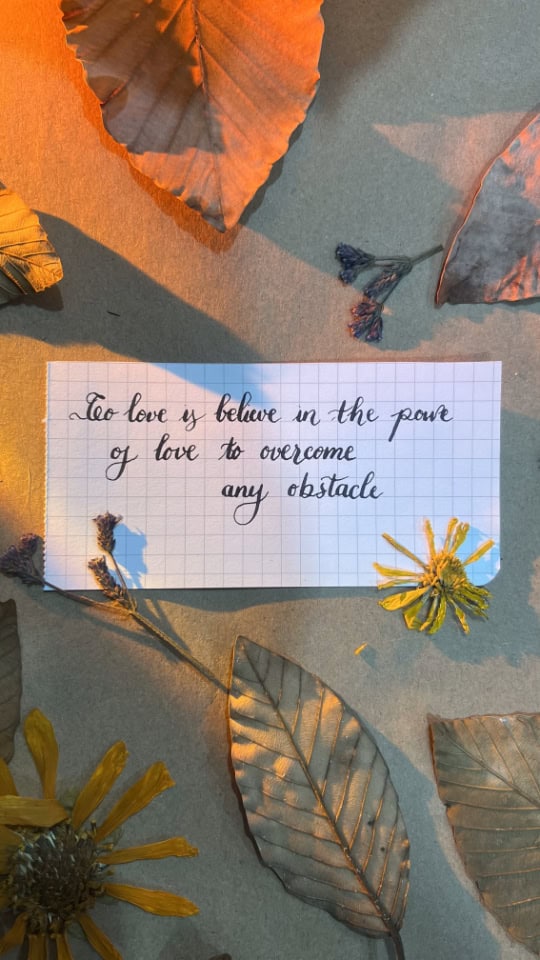 To love is believe in the powe
of love to overcome
any obstacle